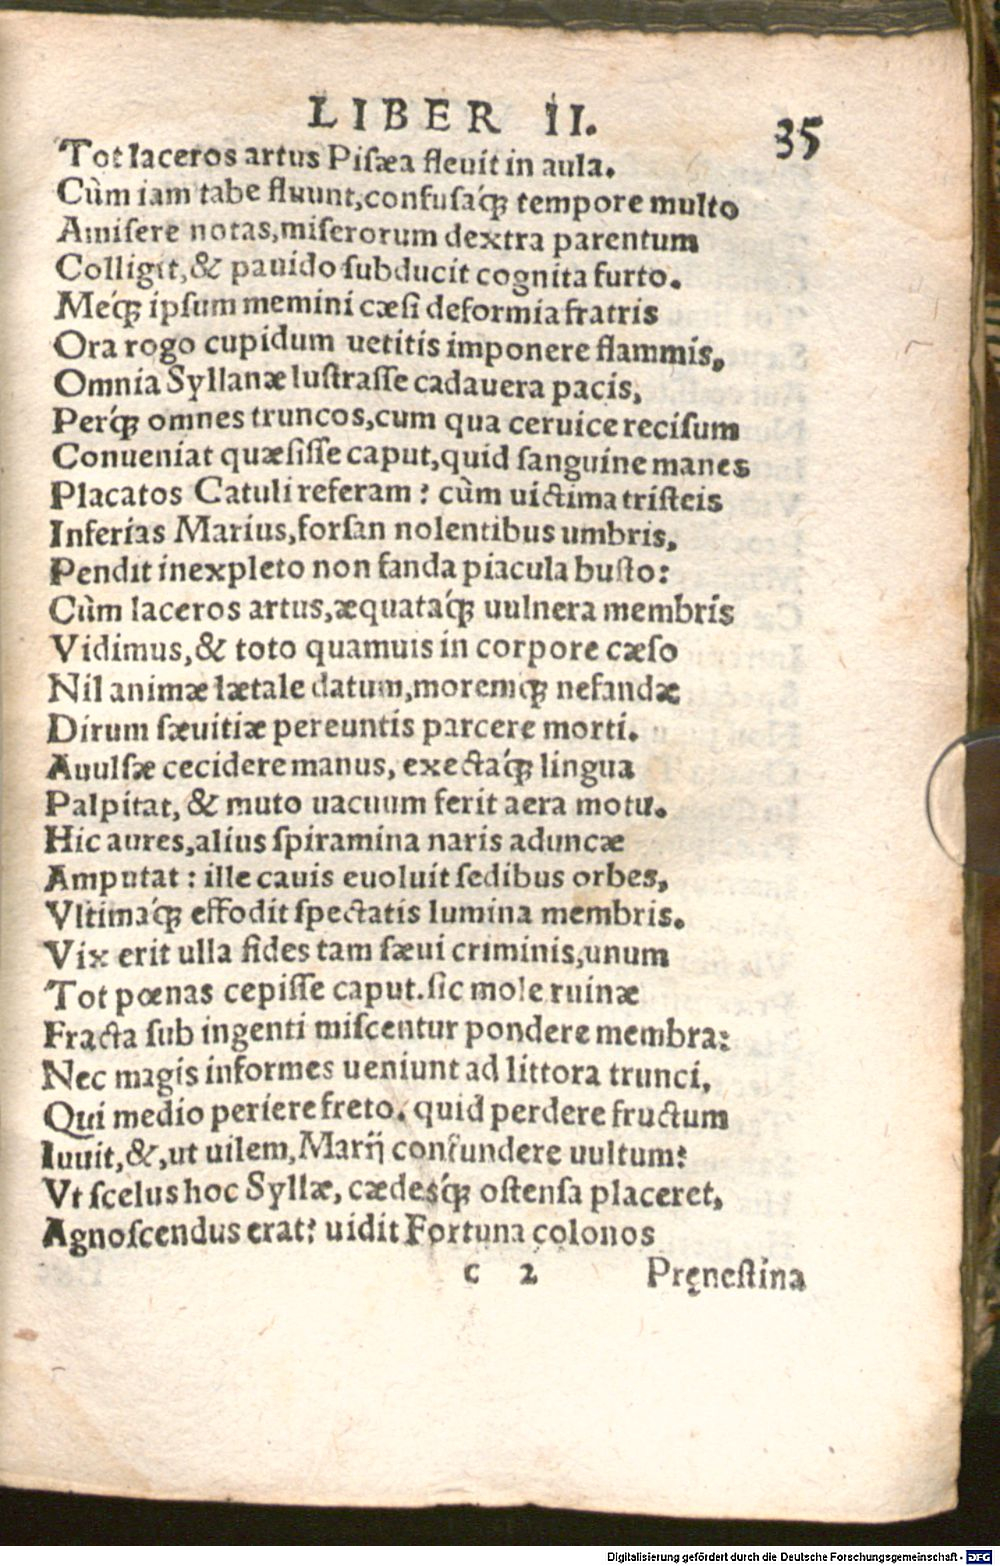 LIBER II. 35
Tot laceros artus Pisæa fleuit in aula.
Cùm iam tabe fluunt,confusaq́; tempore multo
Amisere notas,miserorum dextra parentum
Colligit,& pauido subducit cognita furto.
Meq́; ipsum memini cæsi deformia fratris
Ora rogo cupidum uetitis imponere flammis,
Omnia Syllanæ lustrasse cadauera pacis,
Perq́; omnes truncos,cum qua ceruice recisum
Conueniat quæsisse caput,quid sanguine manes
Placatos Catuli referam? cùm uictima tristeis
Inferias Marius,forsan nolentibus umbris,
Pendit inexpleto non fanda piacula busto:
Cùm laceros artus,æquataq́; uulnera membris
Vidimus,& toto quamuis in corpore cæso
Nil animæ lætale datum,moremq; nefandæ
Dirum sæuitiæ pereuntis parcere morti.
Auulsæ cecidere manus, exectaq́; lingua
Palpitat, & muto uacuum ferit aera motu.
Hic aures,alius spiramina naris aduncæ
Amputat: ille cauis euoluit sedibus orbes,
Vltimaq́; effodit spectatis lumina membris.
Vix erit ulla fides tam sæui criminis,unum
Tot pœnas cepisse caput.sic mole ruinæ
Fracta sub ingenti miscentur pondere membra:
Nec magis informes ueniunt ad littora trunci,
Qui medio periere freto. quid perdere fructum
Iuuit,&,ut uilem,Marij confundere uultum?
Vt scelus hoc Syllæ, cædesq́; ostensa placeret,
Agnoscendus erat? uidit Fortuna colonos
c 2 Pręnestina
Digitalisierung gefördert durch die Deutsche Forschungsgemeinschaft - DFG